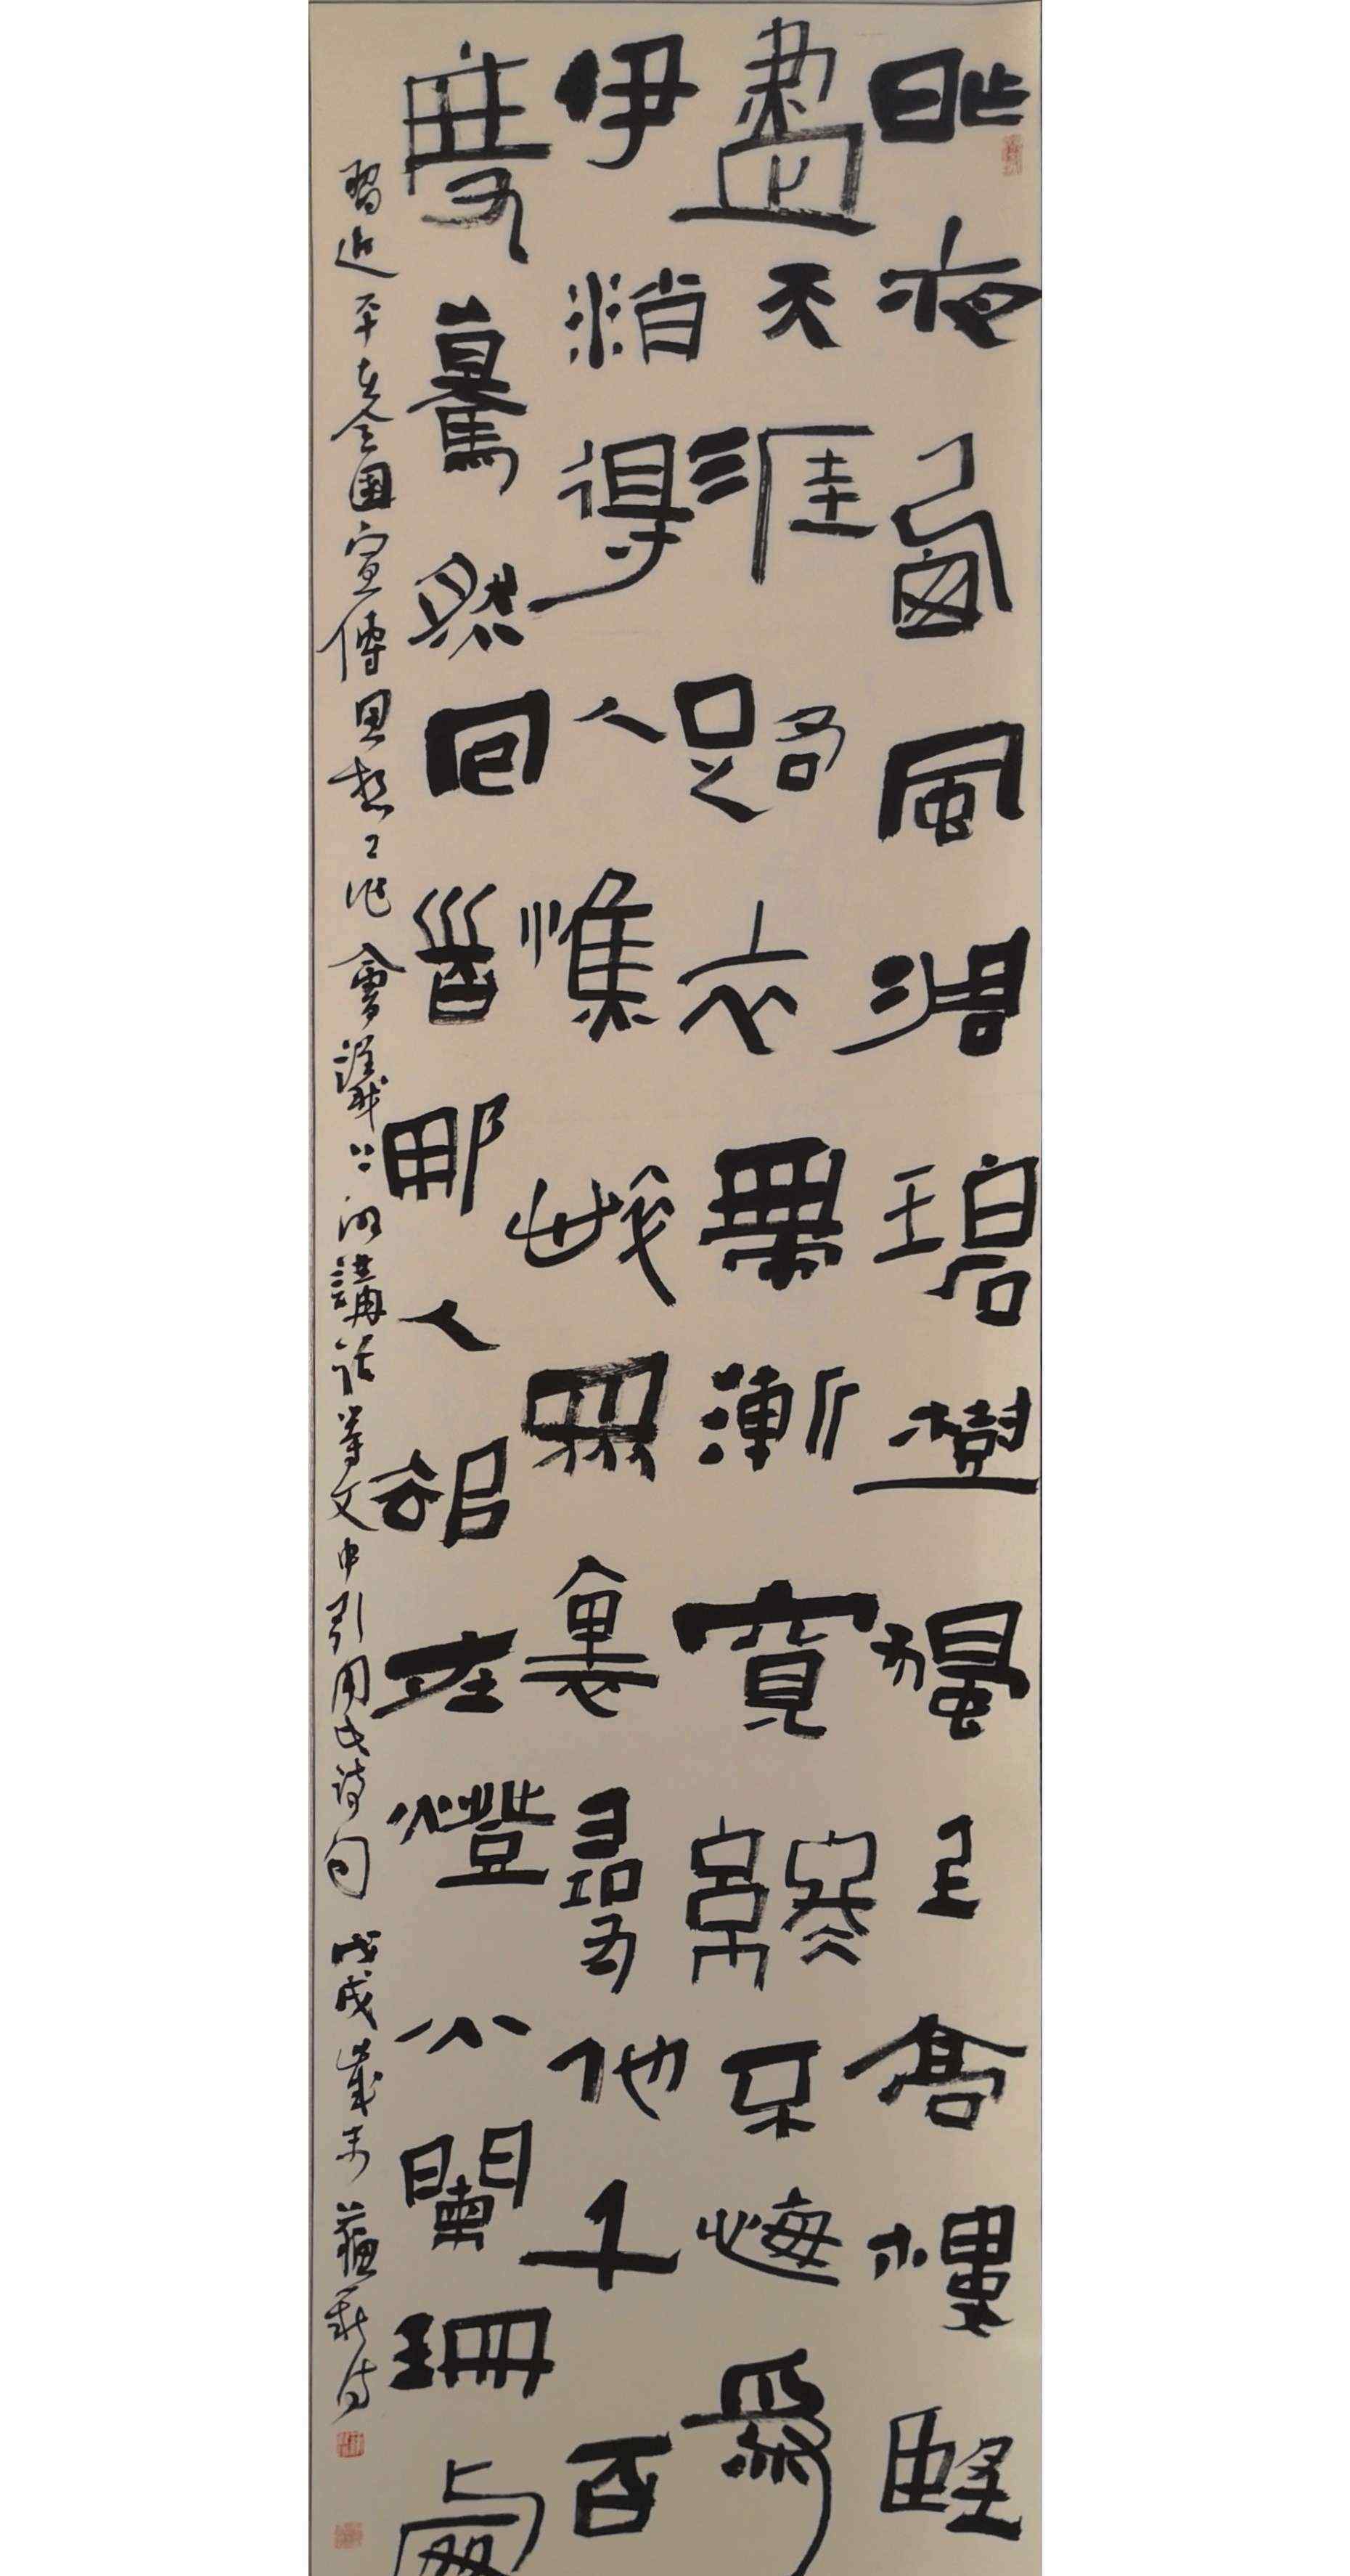 昨夜西風凋碧樹獨上高樓望
盡天涯路衣帶漸寬終不悔為
伊消得人憔悴眾裏尋他千百
度驀然回首那人卻在燈火闌珊處
習近平在全國宣傳思想工作會議上的講話等文中引用此詩句 戊戌歲末